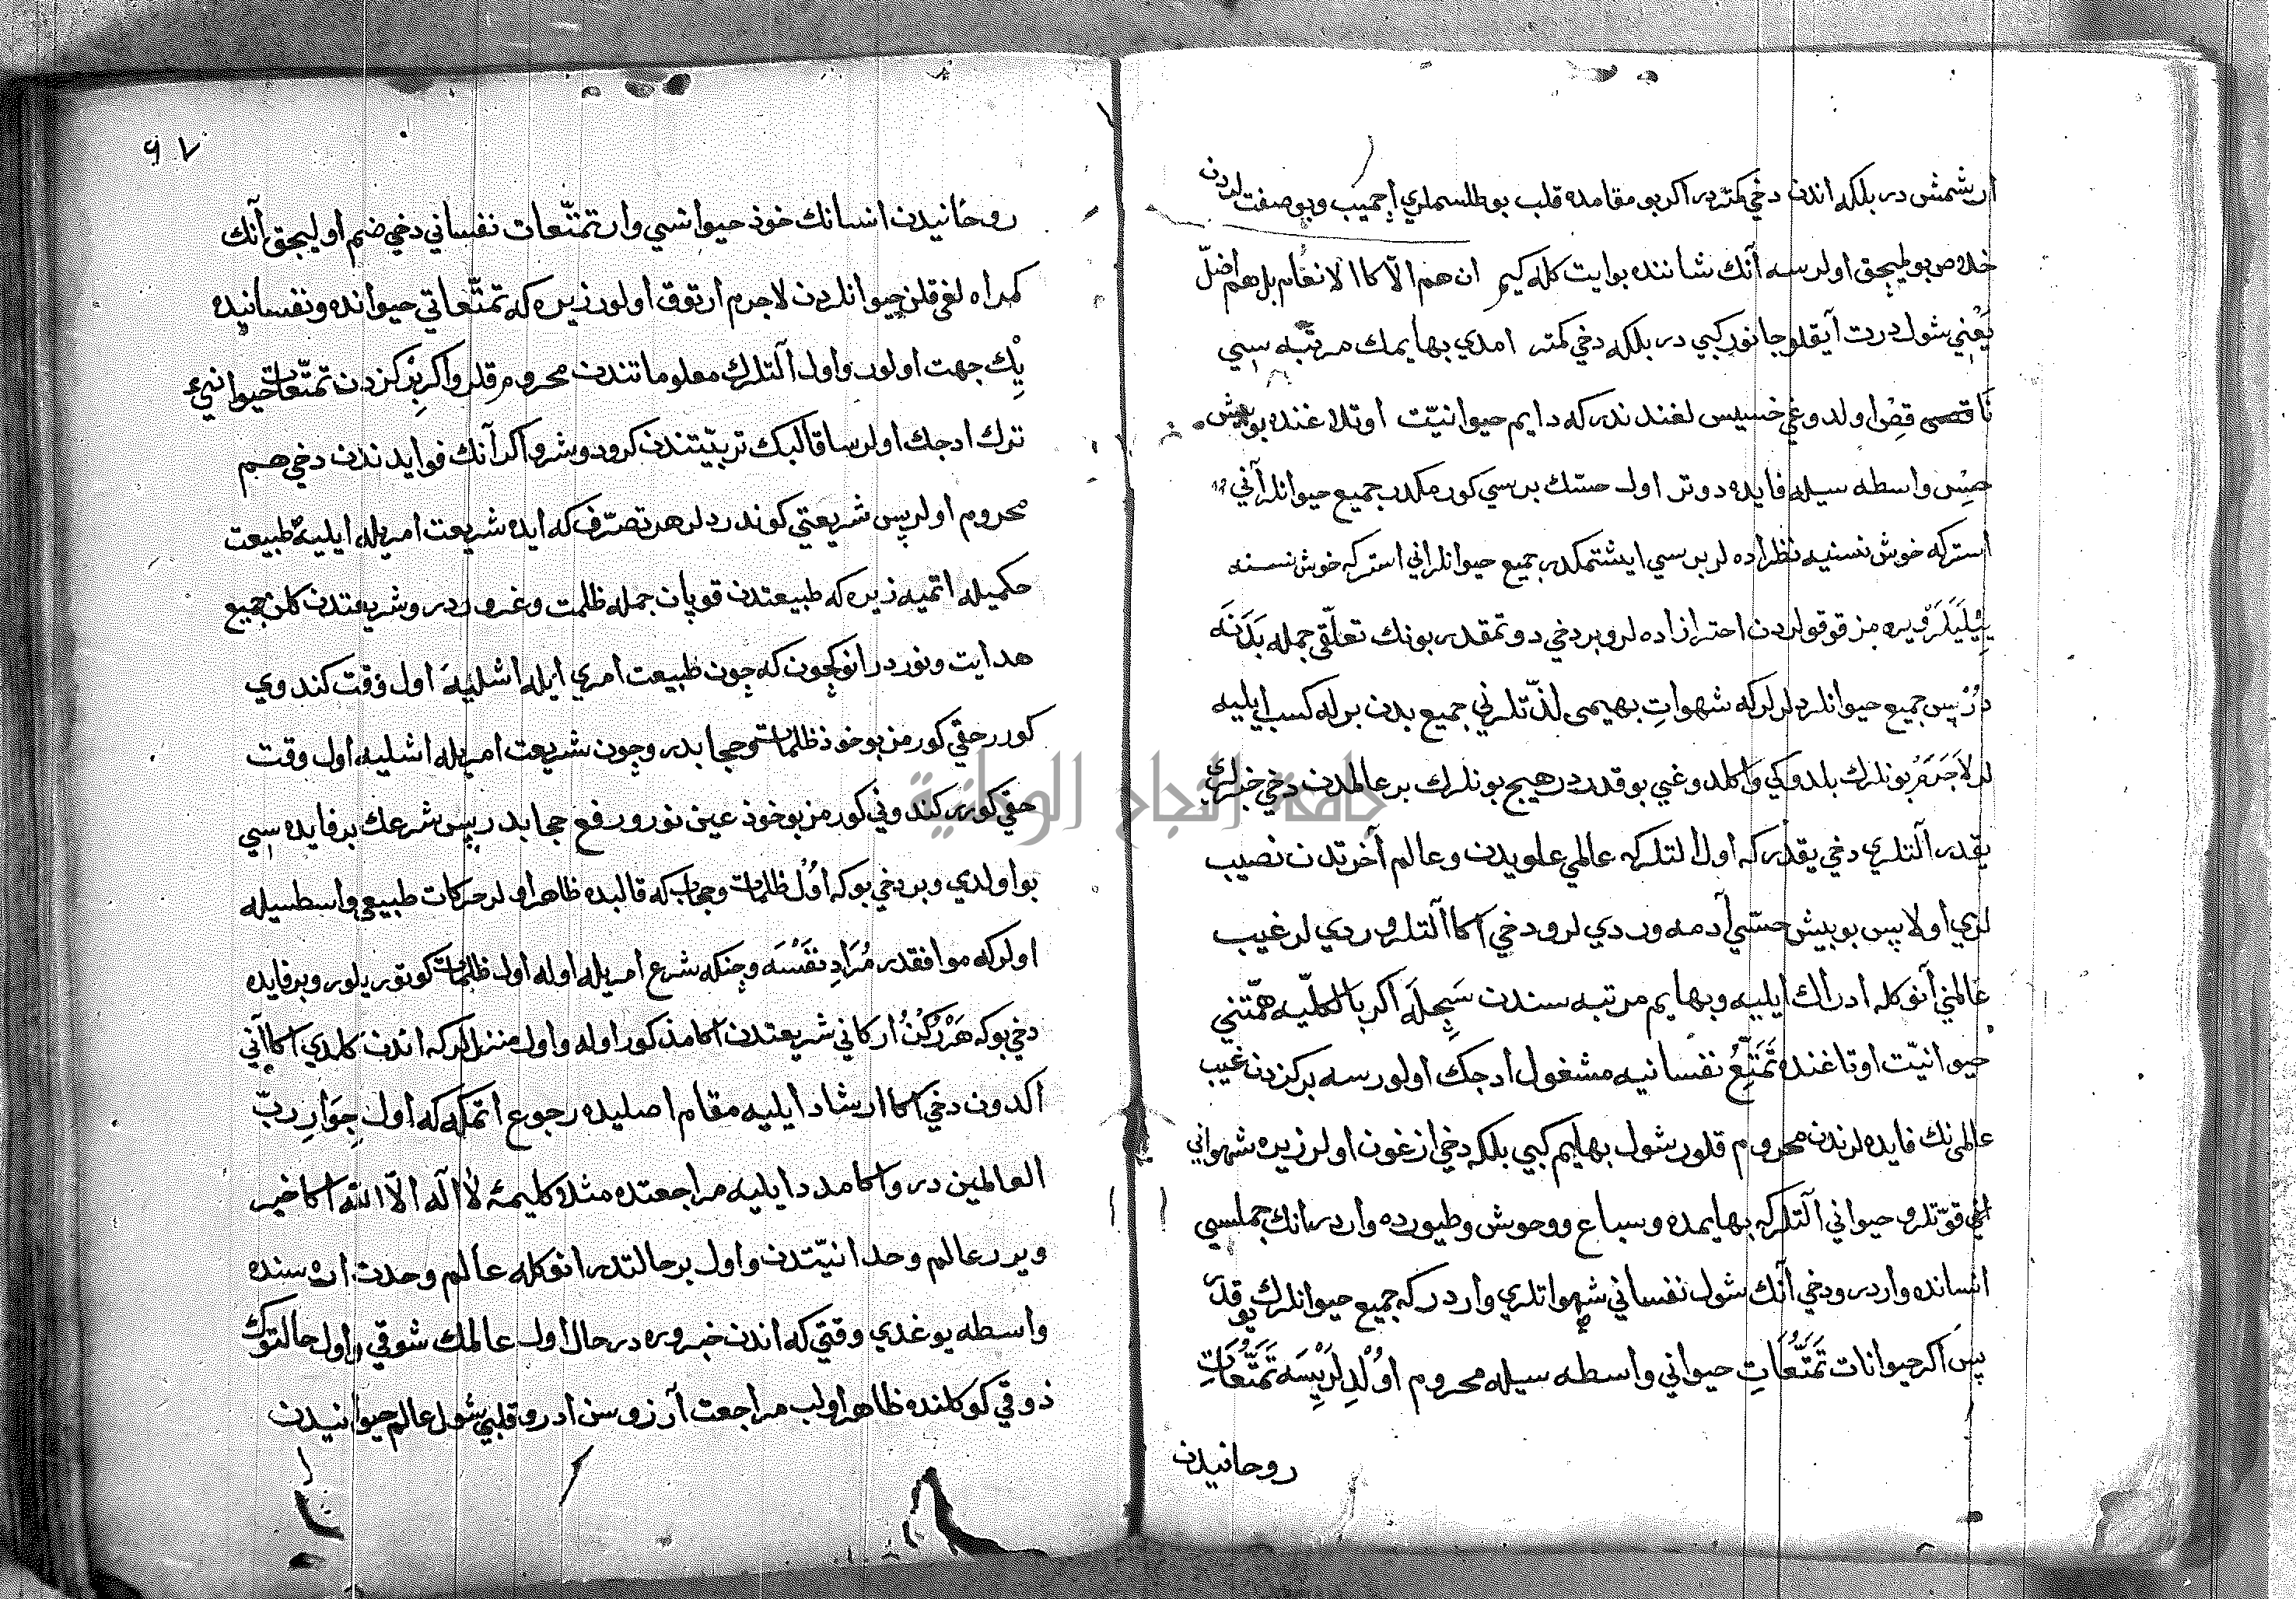 ارشمش در بلكه اندن دخي كتردر اكر بو مقامده قلب بو طلسملري اچميب وبو صفتلردن
خلاص بولميجق اولرسه آنك شاننده بو ايت كله كيم ان هم الّا كا الانعام بل هم اضلّ
يعني شول درت آيقلو جانور كبي در بلكه دخي كمتر امدي بهايمك مرتبه سي
ناقص اولدوغي خسيس لغندندر كه دايم حيوانيّت اوتلاغنده بو بش
حس واسطه سيله فايده دوتر اول حسّك برسي كورمكدر جميع حيوانلر آني
استر كه خوش نسنيه نظر اده لر برسي ايشتمكدر جميع حيوانلر اني استر كه خوش نسنه
قوقولردن احتراز اده لر وبر دخي دوتمقدر بونك تعلّقي جمله بدنه
در پس جميع حيوانلر ديلرلر كه شهوات بهيمي لذّتلرني جميع بدن برله كسب ايليه
لر لاجرم بونلرك بلدوكي واكلدوغي بو قدردر هيچ بونلرك بر عالمدن دخي خبرلري
يقدر آلتلري دخي يقدر كه اول التلر كه عالمي علويدن وعالم آخرتدن نصيب
لري اولا پس بو بيش حسّي آدمه وردي لر ودخي اكا آلتلر وردي لر غيب
عالمني آنوكله ادراك ايليه وبهايم مرتبه سندن سچله اكر بالكلّيه همّتني
حيوانيّت اوتلاغنده تمتّع نفسانيه مشغول ادجك اولورسه بركزدن غيب
عالمنك فايده لرندن محروم قلور شول بهايم كبي بلكه دخي ازغون اولر زيره شهواني
قوّتلر وحيواني آلتلر كه بهايمده وسباع ووحوش وطيورده واردر انك جملسي
انسانده واردر ودخي آنك شول نفساني شهواتلري واردر كه جميع حيوانلرك يوقدر
پس اكر حيوانات تمتّعات حيواني واسطه سيله محروم اولديلريسه تمتّعات
روحانيدن
٩٧
روحانيدن انسانك خوذ حيوانسي وار تمتّعات نفساني دخي ضم اوليجق آنك
كمراه لغي قلن حيوانلردن لاجرم ارتوق اولور زيره كه تمتّعاتي حيوانده ونفسانيده
يك جهت اولور واول آلتلرك معلوماتندن محروم قلر واكر بركزدن تمتّعات حيوانيي
ترك ادجك اولرسا قالبك تربيّتندن كرو دوشر واكر آنك فوايدندن دخي هم
محروم اولر پس شريعتي كوندردلر هر تصرّف كه ايده شريعت امريله ايليه طبيعت
حكميله اتميه زيره كه طبيعتدن قوپان جمله ظلمت وغروردر وشريعتدن كلن جميع
هدايت ونوردر انوكچون كه چون طبيعت امري ايله اشليه اول وقت كندوي
كورر حقي كورمز بو خوذ ظلمات وحجابدر وچون شريعت امريله اشليه اول وقت
حقي كورر كندوني كورمز بو خوذ عين نور ورفع حجابدر پس شرعك بر فايده سي
بو اولدي وبر دخي بو كه اول ظلمات وحجاب كه قالبده ظاهر اولر حركات طبيعي واسطسيله
اولر كه موافقدر مراد نفسه وچنكه شرع امريله اوله اول ظلمات كوتوريلور وبر فايده
دخي بو كه هر ركن اركاني شريعتدن اكا مذكور اوله واول منزللر كه اندن كلدي اكا آني
اكدون دخي اكا ارشاد ايليه مقام اصليده رجوع اتمكه كه اول جوار ربّ
العالمين در واكا مدد ايليه مراجعتده مثلا كليمۀ لا اله الّا الله اكا خبر
ويرر عالم وحدانيّتدن واول بر حالتدر انوكله عالم وحدت اره سنده
واسطه يوغدي وقتي كه اندن خبر وره در حال اول عالمك شوقي واول حالتوك
ذوقي كوكلنده ظاهر اولب مراجعت آرزوسن ادر وقلبي شول عالم حيوانيدن